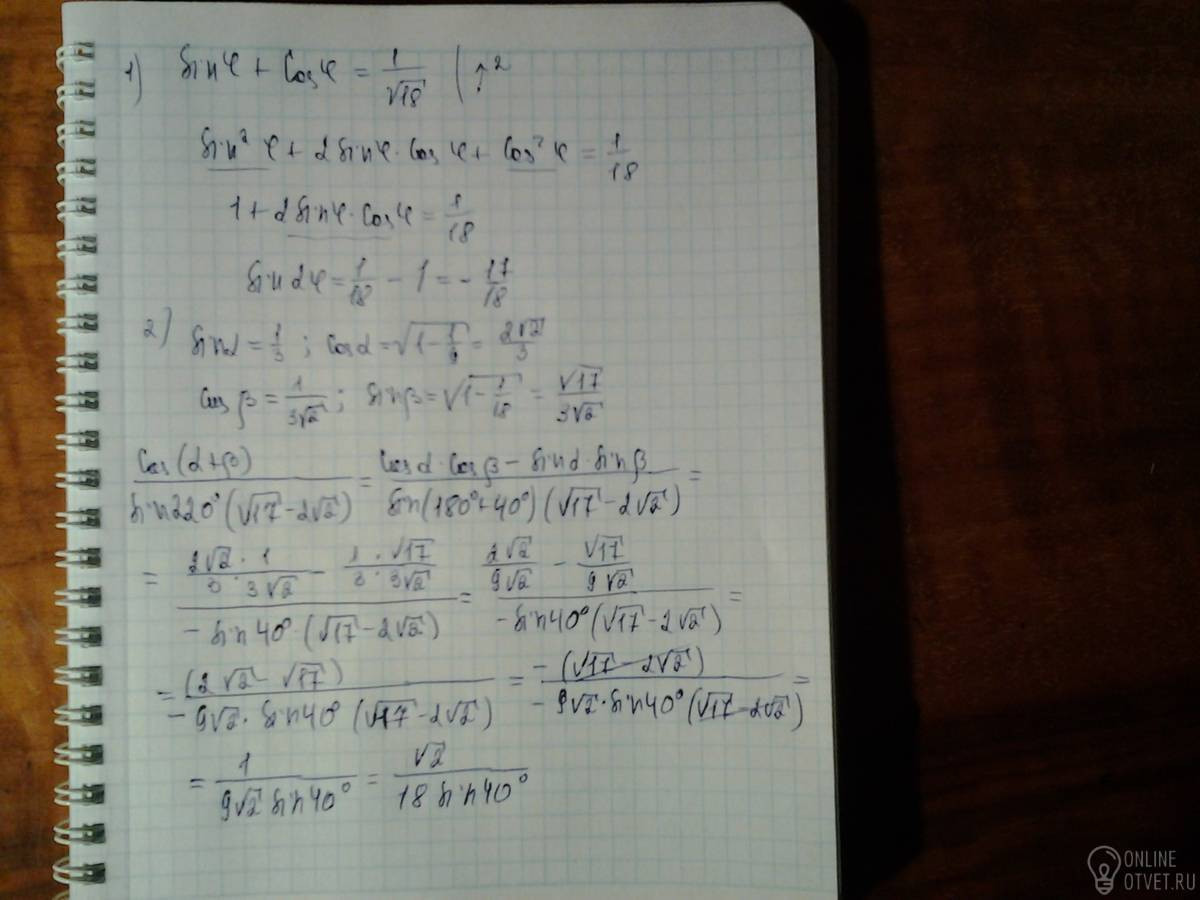 1) sin φ + cos φ = 1/√18 (↑²
sin² φ + 2 sin φ · cos φ + cos² φ = 1/18
1 + 2 sin φ · cos φ = 1/18
sin 2φ = 1/18 - 1 = - 17/18
2) sin α = 1/3 ; cos α = √(1 - 1/9) = 2√2/3
cos β = 1/(3√2) ; sin β = √(1 - 1/18) = √17/(3√2)
cos(α+β)/(sin 220° (√17 - 2√2)) = (cos α · cos β - sin α · sin β)/(sin(180° + 40°) (√17 - 2√2)) =
= ((2√2 · 1)/(3 · 3√2) - (1 · √17)/(3 · 3√2))/(- sin 40° · (√17 - 2√2)) = (2√2/(9√2) - √17/(9√2))/(- sin 40° (√17 - 2√2)) =
= (2√2 - √17)/(- 9√2 · sin 40° (√17 - 2√2)) = -(√17 - 2√2)/(- 9√2 · sin 40° (√17 - 2√2)) =
= 1/(9√2 sin 40°) = √2/(18 sin 40°)
ONLINE
OTVET.RU